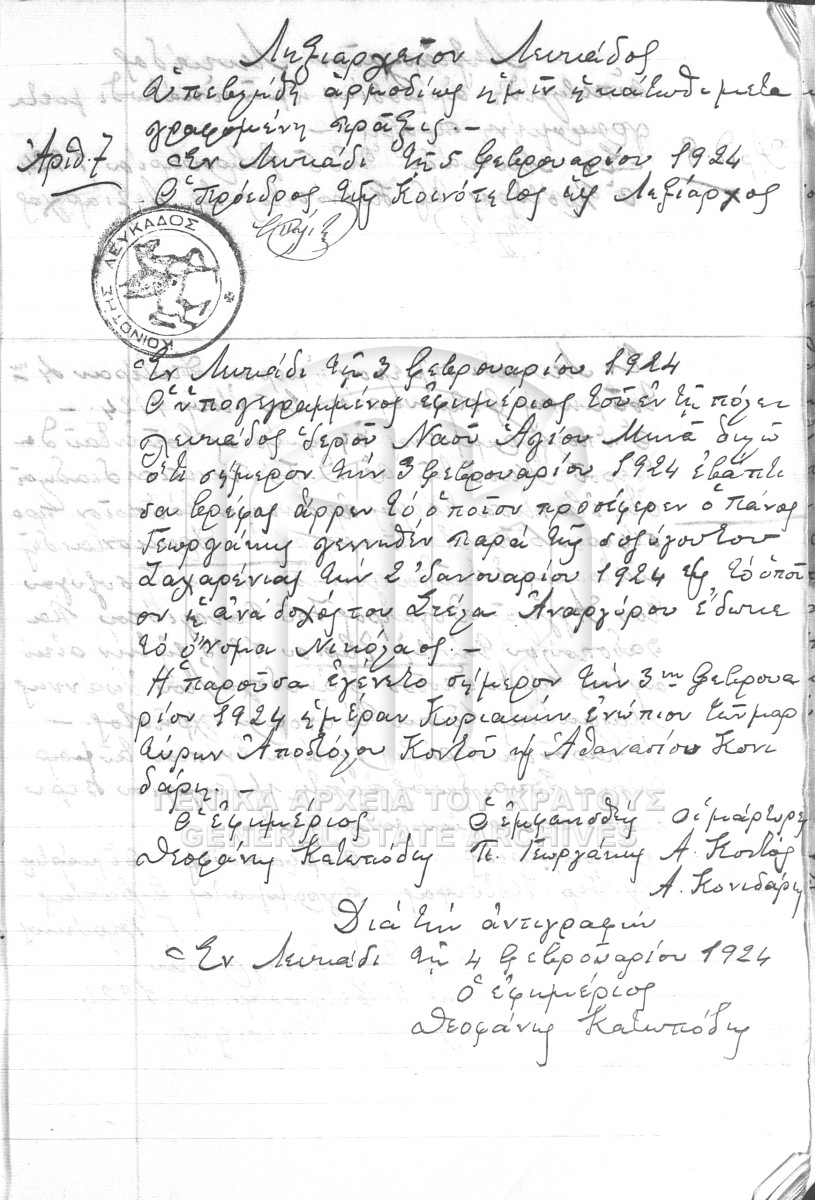 Ληξιαρχεῖον Λευκάδος
Ὑπεβλήθη ἁρμοδίως ἡμῖν ἡ κάτωθι μετα
γραφομένη πρᾶξις.—
Ἀριθ. 7
Ἐν Λευκάδι τῇ 5 Φεβρουαρίου 1924
Ὁ Πρόεδρος τῆς Κοινότητος καὶ Ληξίαρχος
ΚΟΙΝΟΤΗΣ ΛΕΥΚΑΔΟΣ
Ἐν Λευκάδι τῇ 3 Φεβρουαρίου 1924
Ὁ ὑπογεγραμμένος ἐφημέριος τοῦ ἐν τῇ πόλει
Λευκάδος Ἱεροῦ Ναοῦ Ἁγίου Μηνᾶ δηλῶ
ὅτι σήμερον τὴν 3 Φεβρουαρίου 1924 ἐβάπτι
σα βρέφος ἄρρεν τὸ ὁποῖον προσέφερεν ὁ Πάνος
Γεωργάκης γεννηθὲν παρὰ τῆς συζύγου του
Ζαχαρένιας τὴν 2 Ἰανουαρίου 1924 καὶ τὸ ὁποῖ
ον ἡ ἀνάδοχός του Στέλα Ἀναργύρου ἔδωκε
τὸ ὄνομα Νικόλαος.—
Ἡ παροῦσα ἐγένετο σήμερον τὴν 3ην Φεβρουα
ρίου 1924 ἡμέραν Κυριακὴν ἐνώπιον τῶν μαρ
τύρων Ἀποστόλου Κοντοῦ καὶ Ἀθανασίου Κονι
δάρη.—
ΓΕΝΙΚΑ ΑΡΧΕΙΑ ΤΟΥ ΚΡΑΤΟΥΣ
GENERAL STATE ARCHIVES
Ὁ ἐφημέριος Ὁ ἐμφανισθεὶς Οἱ μάρτυρες
Θεοφάνης Κατωπόδης Π. Γεωργάκης Α. Κοντός
Α. Κονιδάρης
Διὰ τὴν ἀντιγραφὴν
Ἐν Λευκάδι τῇ 4 Φεβρουαρίου 1924
Ὁ ἐφημέριος
Θεοφάνης Κατωπόδης